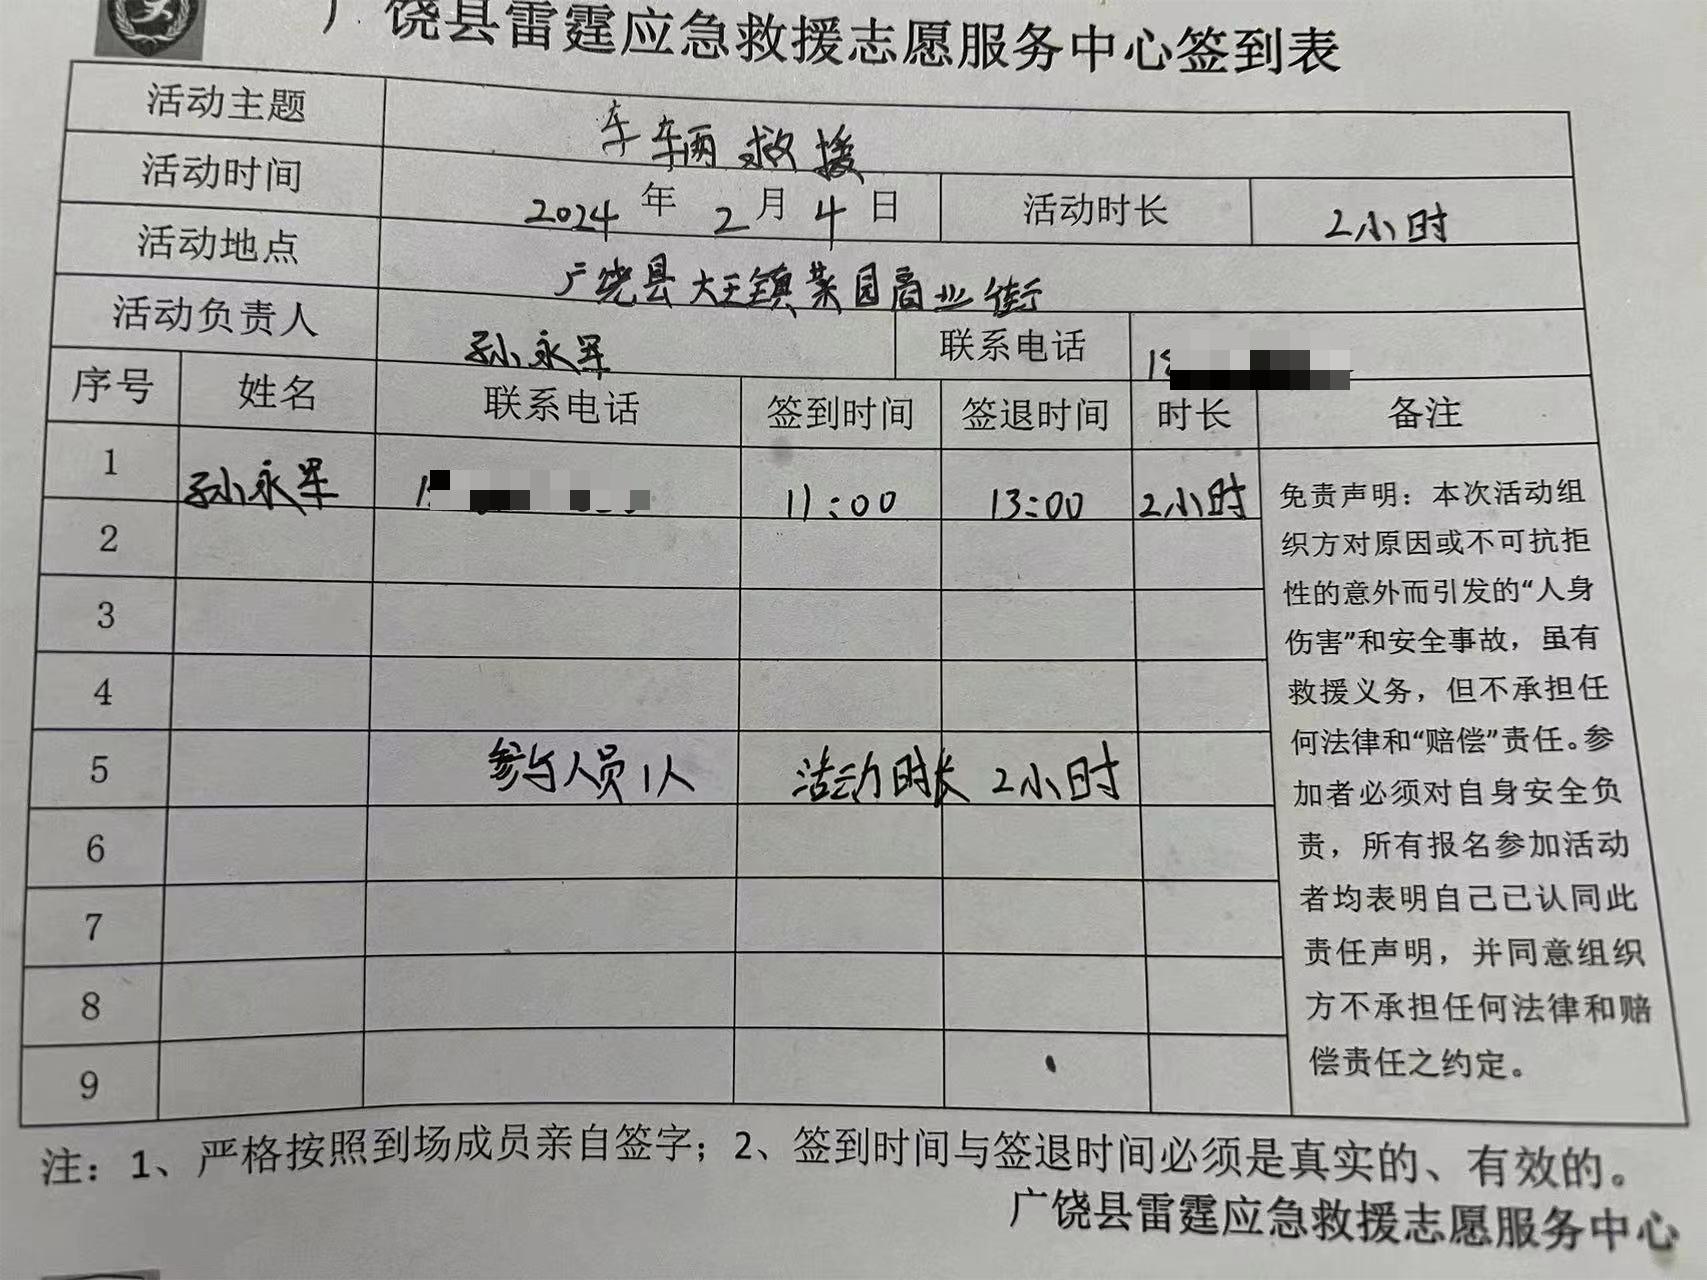 广饶县雷霆应急救援志愿服务中心签到表
活动主题 车辆救援
活动时间 2024 年 2 月 4 日 活动时长 2小时
活动地点 广饶县大王镇菜园商业街
活动负责人 孙永军 联系电话
序号 姓名 联系电话 签到时间 签退时间 时长 备注
1 孙永军 11:00 13:00 2小时
2
3
4
5 参与人员1人 活动时长 2小时
6
7
8
9
免责声明：本次活动组
织方对原因或不可抗拒
性的意外而引发的“人身
伤害”和安全事故，虽有
救援义务，但不承担任
何法律和“赔偿”责任。参
加者必须对自身安全负
责，所有报名参加活动
者均表明自己已认同此
责任声明，并同意组织
方不承担任何法律和赔
偿责任之约定。
注：1、严格按照到场成员亲自签字；2、签到时间与签退时间必须是真实的、有效的。
广饶县雷霆应急救援志愿服务中心